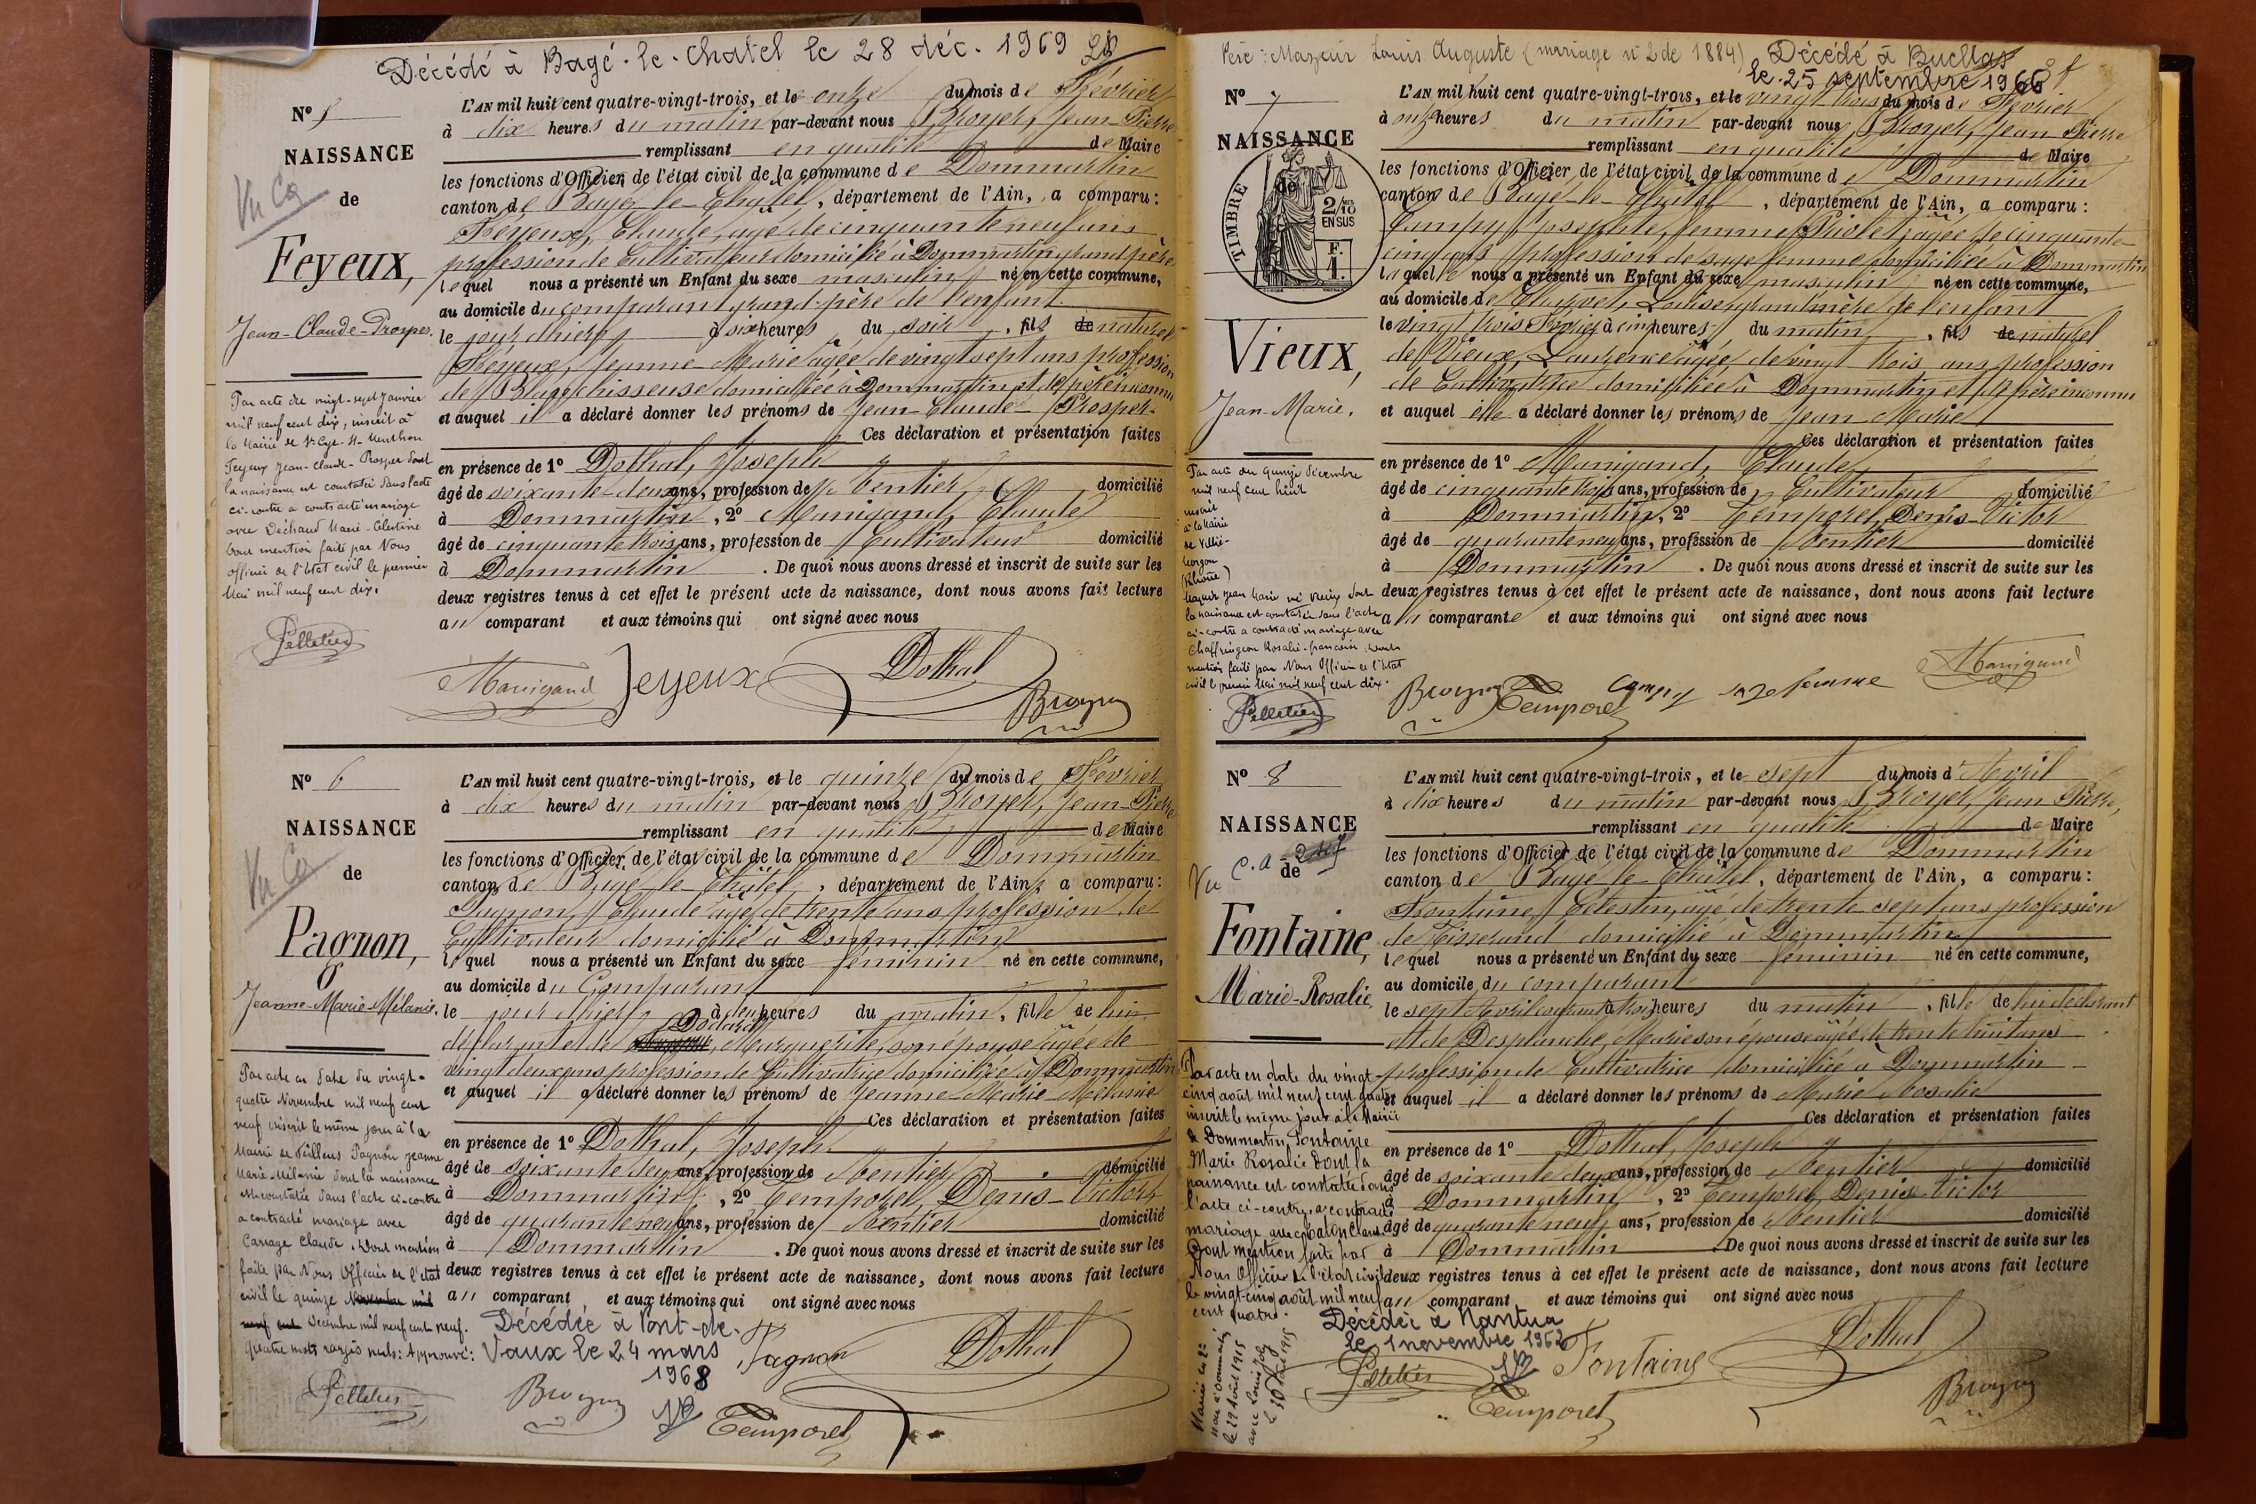 Décédé à Bagé-le-Chatel le 28 déc. 1969
N° 5
NAISSANCE
de
Feyeux,
Jean-Claude-Prosper.
Vu Ca
L'AN mil huit cent quatre-vingt-trois, et le onze du mois de Février
à dix heures du matin par-devant nous Broyer, Jean-Pierre
remplissant en qualité de Maire
les fonctions d'Officier de l'état civil de la commune de Dommartin
canton de Bagé-le-Châtel, département de l'Ain, a comparu:
Feyeux, Claude, âgé de cinquante neuf ans
profession de Cultivateur domicilié à Dommartin grand père
lequel nous a présenté un Enfant du sexe masculin né en cette commune,
au domicile du comparant grand-père de l'enfant
le jour d'hier à six heures du soir, fils de naturel
Feyeux, Jeanne-Marie âgée de vingt sept ans profession
de Blanchisseuse domiciliée à Dommartin et de père inconnu
et auquel il a déclaré donner les prénoms de Jean-Claude-Prosper-
Ces déclaration et présentation faites
en présence de 1° Dothal, Joseph
âgé de soixante-deux ans, profession de Rentier domicilié
à Dommartin, 2° Manigand, Claude
âgé de cinquante trois ans, profession de Cultivateur domicilié
à Dommartin. De quoi nous avons dressé et inscrit de suite sur les
deux registres tenus à cet effet le présent acte de naissance, dont nous avons fait lecture
au comparant et aux témoins qui ont signé avec nous
Manigand Feyeux Dothal
Broyer
Par acte du vingt-sept Janvier
mil neuf cent dix, inscrit à
la Mairie de St Cyr-s-Menthon
Feyeux Jean-Claude-Prosper dont
la naissance est constatée dans l'acte
ci-contre a contracté mariage
avec Déchaud Marie-Célestine
Dont mention faite par Nous
officier de l'état civil le premier
Mai mil neuf cent dix.
Pelletier
N° 6
NAISSANCE
de
Pagnon,
Jeanne-Marie-Mélanie.
Vu Ca
L'AN mil huit cent quatre-vingt-trois, et le quinze du mois de Février
à dix heures du matin par-devant nous Broyer, Jean-Pierre
remplissant en qualité de Maire
les fonctions d'Officier de l'état civil de la commune de Dommartin
canton de Bagé-le-Châtel, département de l'Ain, a comparu:
Pagnon, Claude âgé de trente ans profession de
Cultivateur domicilié à Dommartin
lequel nous a présenté un Enfant du sexe féminin né en cette commune,
au domicile du Comparant
le jour d'hier à heures du matin, fille de lui
déclarant et de Marguerite, son épouse âgée de
vingt deux ans profession de Cultivatrice domiciliée à Dommartin
et auquel il a déclaré donner les prénoms de Jeanne-Marie Mélanie
Ces déclaration et présentation faites
en présence de 1° Dothal, Joseph
âgé de soixante deux ans, profession de Rentier domicilié
à Dommartin, 2° Temporel, Denis-Victor
âgé de quarante neuf ans, profession de Rentier domicilié
à Dommartin. De quoi nous avons dressé et inscrit de suite sur les
deux registres tenus à cet effet le présent acte de naissance, dont nous avons fait lecture
au comparant et aux témoins qui ont signé avec nous
Décédée à Pont-de-
Vaux le 24 mars
1968
Pagnon Dothal
Broyer Temporel
Par acte en date du vingt-
quatre Novembre mil neuf cent
neuf inscrit le même jour à la
Mairie de Feillens Pagnon Jeanne
Marie-Mélanie dont la naissance
est constatée dans l'acte ci-contre
a contracté mariage avec
Carrage Claude. Dont mention
faite par Nous Officier de l'état
civil le quinze Novembre mil
neuf cent Décembre mil neuf cent neuf.
quatre mots rayés nuls: Approuvé:
Pelletier
Père: Mazuir Louis Auguste (mariage n° 2 de 1884) Décédé à Buellas
le 25 septembre 1966
N° 7
NAISSANCE
de
TIMBRE
2/10
EN SUS
F.
1.
Vieux,
Jean-Marie.
L'AN mil huit cent quatre-vingt-trois, et le vingt trois du mois de Février
à onze heures du matin par-devant nous Broyer, Jean Pierre
remplissant en qualité de Maire
les fonctions d'Officier de l'état civil de la commune de Dommartin
canton de Bagé-le-Châtel, département de l'Ain, a comparu:
Campy Josephte, femme Priolet, agée de cinquante
cinq ans profession de sage femme domiciliée à Dommartin
laquelle nous a présenté un Enfant du sexe masculin né en cette commune,
au domicile de Louise, grand'mère de l'enfant
le vingt trois Février à cinq heures du matin, fils de naturel
de Vieux, Laurence âgée de vingt trois ans profession
de Cultivatrice domiciliée à Dommartin et de père inconnu
et auquel elle a déclaré donner les prénoms de Jean Marie
Ces déclaration et présentation faites
en présence de 1° Manigand, Claude
âgé de cinquante trois ans, profession de Cultivateur domicilié
à Dommartin, 2° Temporel, Denis-Victor
âgé de quarante neuf ans, profession de Rentier domicilié
à Dommartin. De quoi nous avons dressé et inscrit de suite sur les
deux registres tenus à cet effet le présent acte de naissance, dont nous avons fait lecture
a la comparante et aux témoins qui ont signé avec nous
Broyer Temporel Campy sage femme Manigand
Par acte du quinze Décembre
mil neuf cent huit
inscrit
à la Mairie
de Villié-
Morgon
(Rhône)
Mazuir Jean Marie né Vieux dont
la naissance est constatée dans l'acte
ci-contre a contracté mariage avec
Chaffringeon Rosalie-Françoise. Dont
mention faite par Nous Officier de l'état
civil le premier Mai mil neuf cent dix.
Pelletier
N° 8
NAISSANCE
de
Vu C.a
Fontaine,
Marie-Rosalie
L'AN mil huit cent quatre-vingt-trois, et le sept du mois d'Avril
à dix heures du matin par-devant nous Broyer, Jean Pierre,
remplissant en qualité de Maire
les fonctions d'Officier de l'état civil de la commune de Dommartin
canton de Bagé-le-Châtel, département de l'Ain, a comparu:
Fontaine, Célestin, agé de trente sept ans profession
de Tisserand domicilié à Dommartin
lequel nous a présenté un Enfant du sexe féminin né en cette commune,
au domicile du comparant
le sept Avril courant à trois heures du matin, fille de lui déclarant
et de Desplanche, Marie son épouse âgée de trente huit ans
profession de Cultivatrice domiciliée à Dommartin
et auquel il a déclaré donner les prénoms de Marie Rosalie
Ces déclaration et présentation faites
en présence de 1° Dothal, Joseph
âgé de soixante deux ans, profession de Rentier domicilié
à Dommartin, 2° Temporel, Denis Victor
âgé de quarante neuf ans, profession de Rentier domicilié
à Dommartin. De quoi nous avons dressé et inscrit de suite sur les
deux registres tenus à cet effet le présent acte de naissance, dont nous avons fait lecture
au comparant et aux témoins qui ont signé avec nous
Décédée à Nantua
le 1 novembre 1952
Pelletier Fontaine Dothal
Temporel Broyer
Par acte en date du vingt-
cinq août mil neuf cent quatre
inscrit le même jour à la Mairie
de Dommartin, Fontaine
Marie Rosalie dont la
naissance est constatée dans
l'acte ci-contre, a contracté
mariage avec Claude
Dont mention faite par
Nous Officier de l'état civil
le vingt-cinq août mil neuf
cent quatre.
le 29 Août 1915